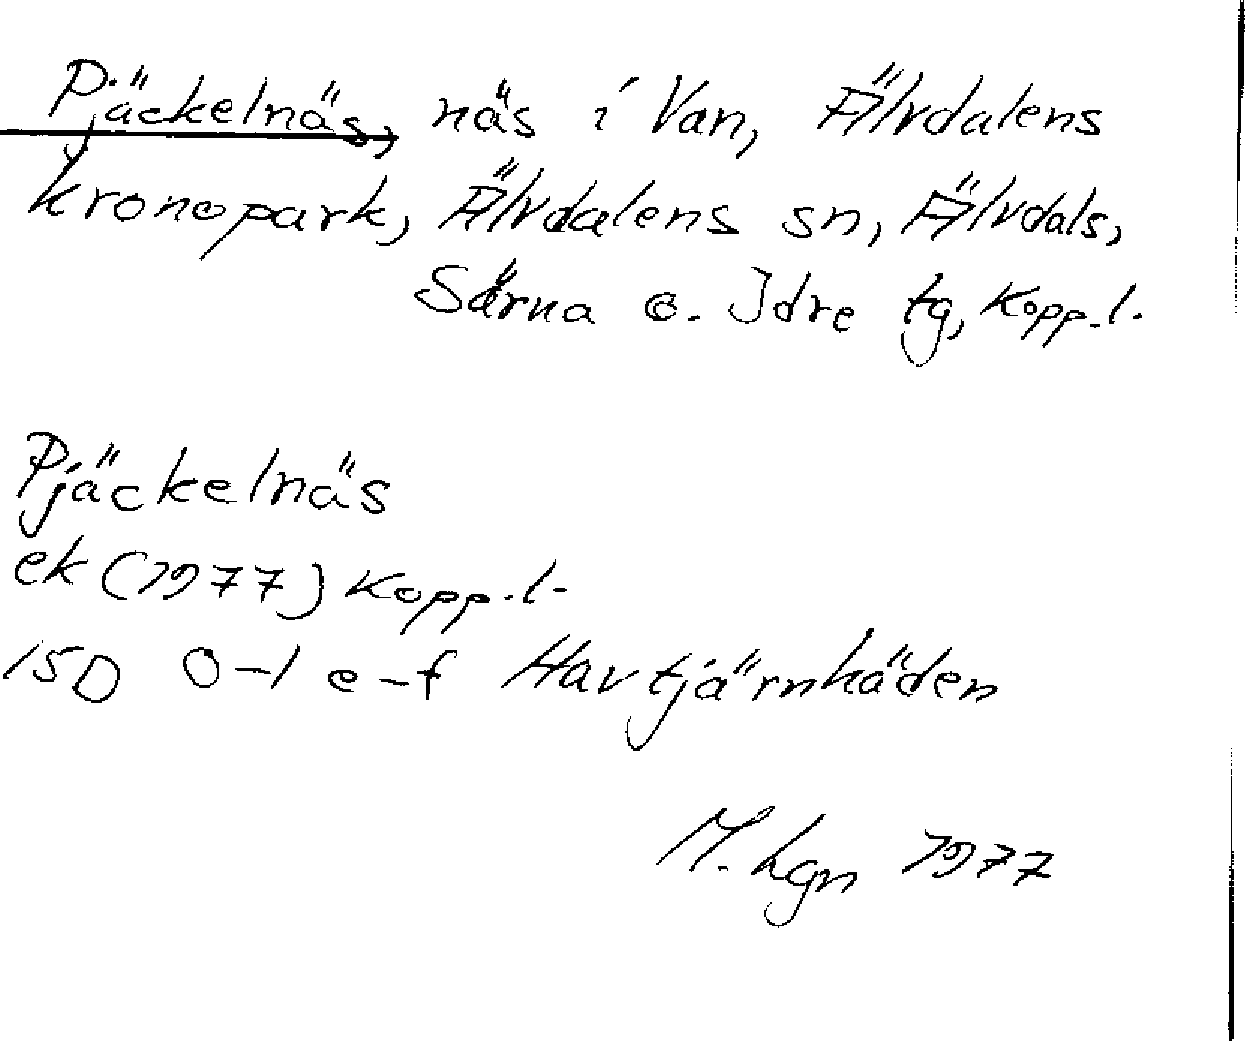 Pjäckelnäs, näs i Van, Älvdalens
kronopark, Älvdalens sn, Älvdals,
Särna o. Idre tg, Kopp. l.
Pjäckelnäs
ek (1977) Kopp. l.
15D 0-1 e-f Havtjärnhäden
M. Lgn 1977